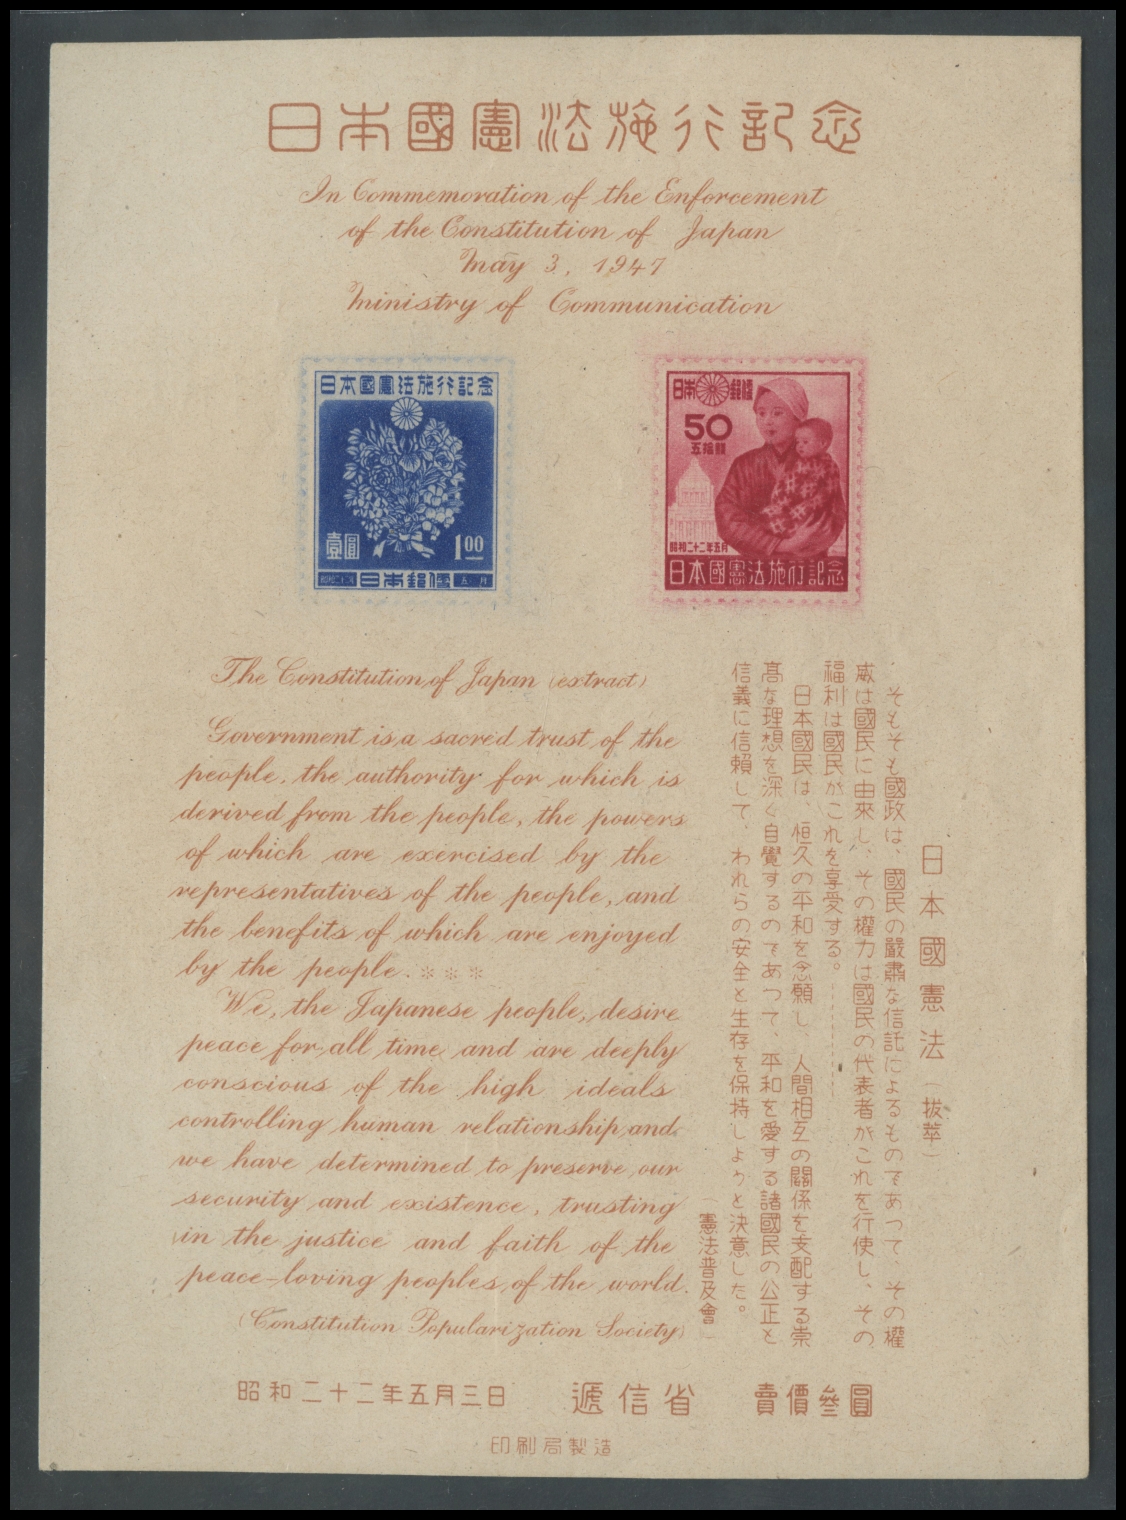 日本國憲法施行記念
In Commemoration of the Enforcement
of the Constitution of Japan
May 3, 1947
Ministry of Communication
日本國憲法施行記念
壹圓
1.00
日本郵便
五月
日本郵便
50
五拾錢
昭和二十二年五月
日本國憲法施行記念
The Constitution of Japan (extract)
Government is a sacred trust of the
people, the authority for which is
derived from the people, the powers
of which are exercised by the
representatives of the people, and
the benefits of which are enjoyed
by the people. ***
We, the Japanese people, desire
peace for all time and are deeply
conscious of the high ideals
controlling human relationship and
we have determined to preserve our
security and existence, trusting
in the justice and faith of the
peace-loving peoples of the world.
(Constitution Popularization Society)
日本國憲法(拔萃)
そもそも國政は、國民の嚴肅な信託によるものであつて、その權
威は國民に由來し、その權力は國民の代表者がこれを行使し、その
福利は國民がこれを享受する。…………
日本國民は、恒久の平和を念願し、人間相互の關係を支配する崇
高な理想を深く自覺するのであつて、平和を愛する諸國民の公正と
信義に信賴して、われらの安全と生存を保持しようと決意した。
(憲法普及會)
昭和二十二年五月三日 遞信省 賣價參圓
印刷局製造